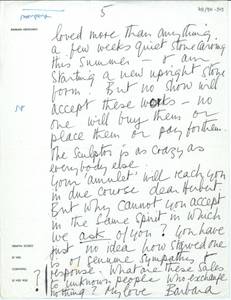 5
loved more than anything
a few weeks quiet stone carving
this summer – or am
starting a new upright stone
form! But no show will
accept these works – no
one will buy them or
place them or pay for them.
The sculptor is as crazy as
everybody else.
Your 'amulet' will reach you
in due course dear Herbert
But why cannot you accept
in the same spirit in which
we ask of you? You have
just no idea how starved one
is of genuine sympathy &
response. What are these sales
to unknown people who exchange
nothing? My love Barbara
BARBARA HEPWORTH